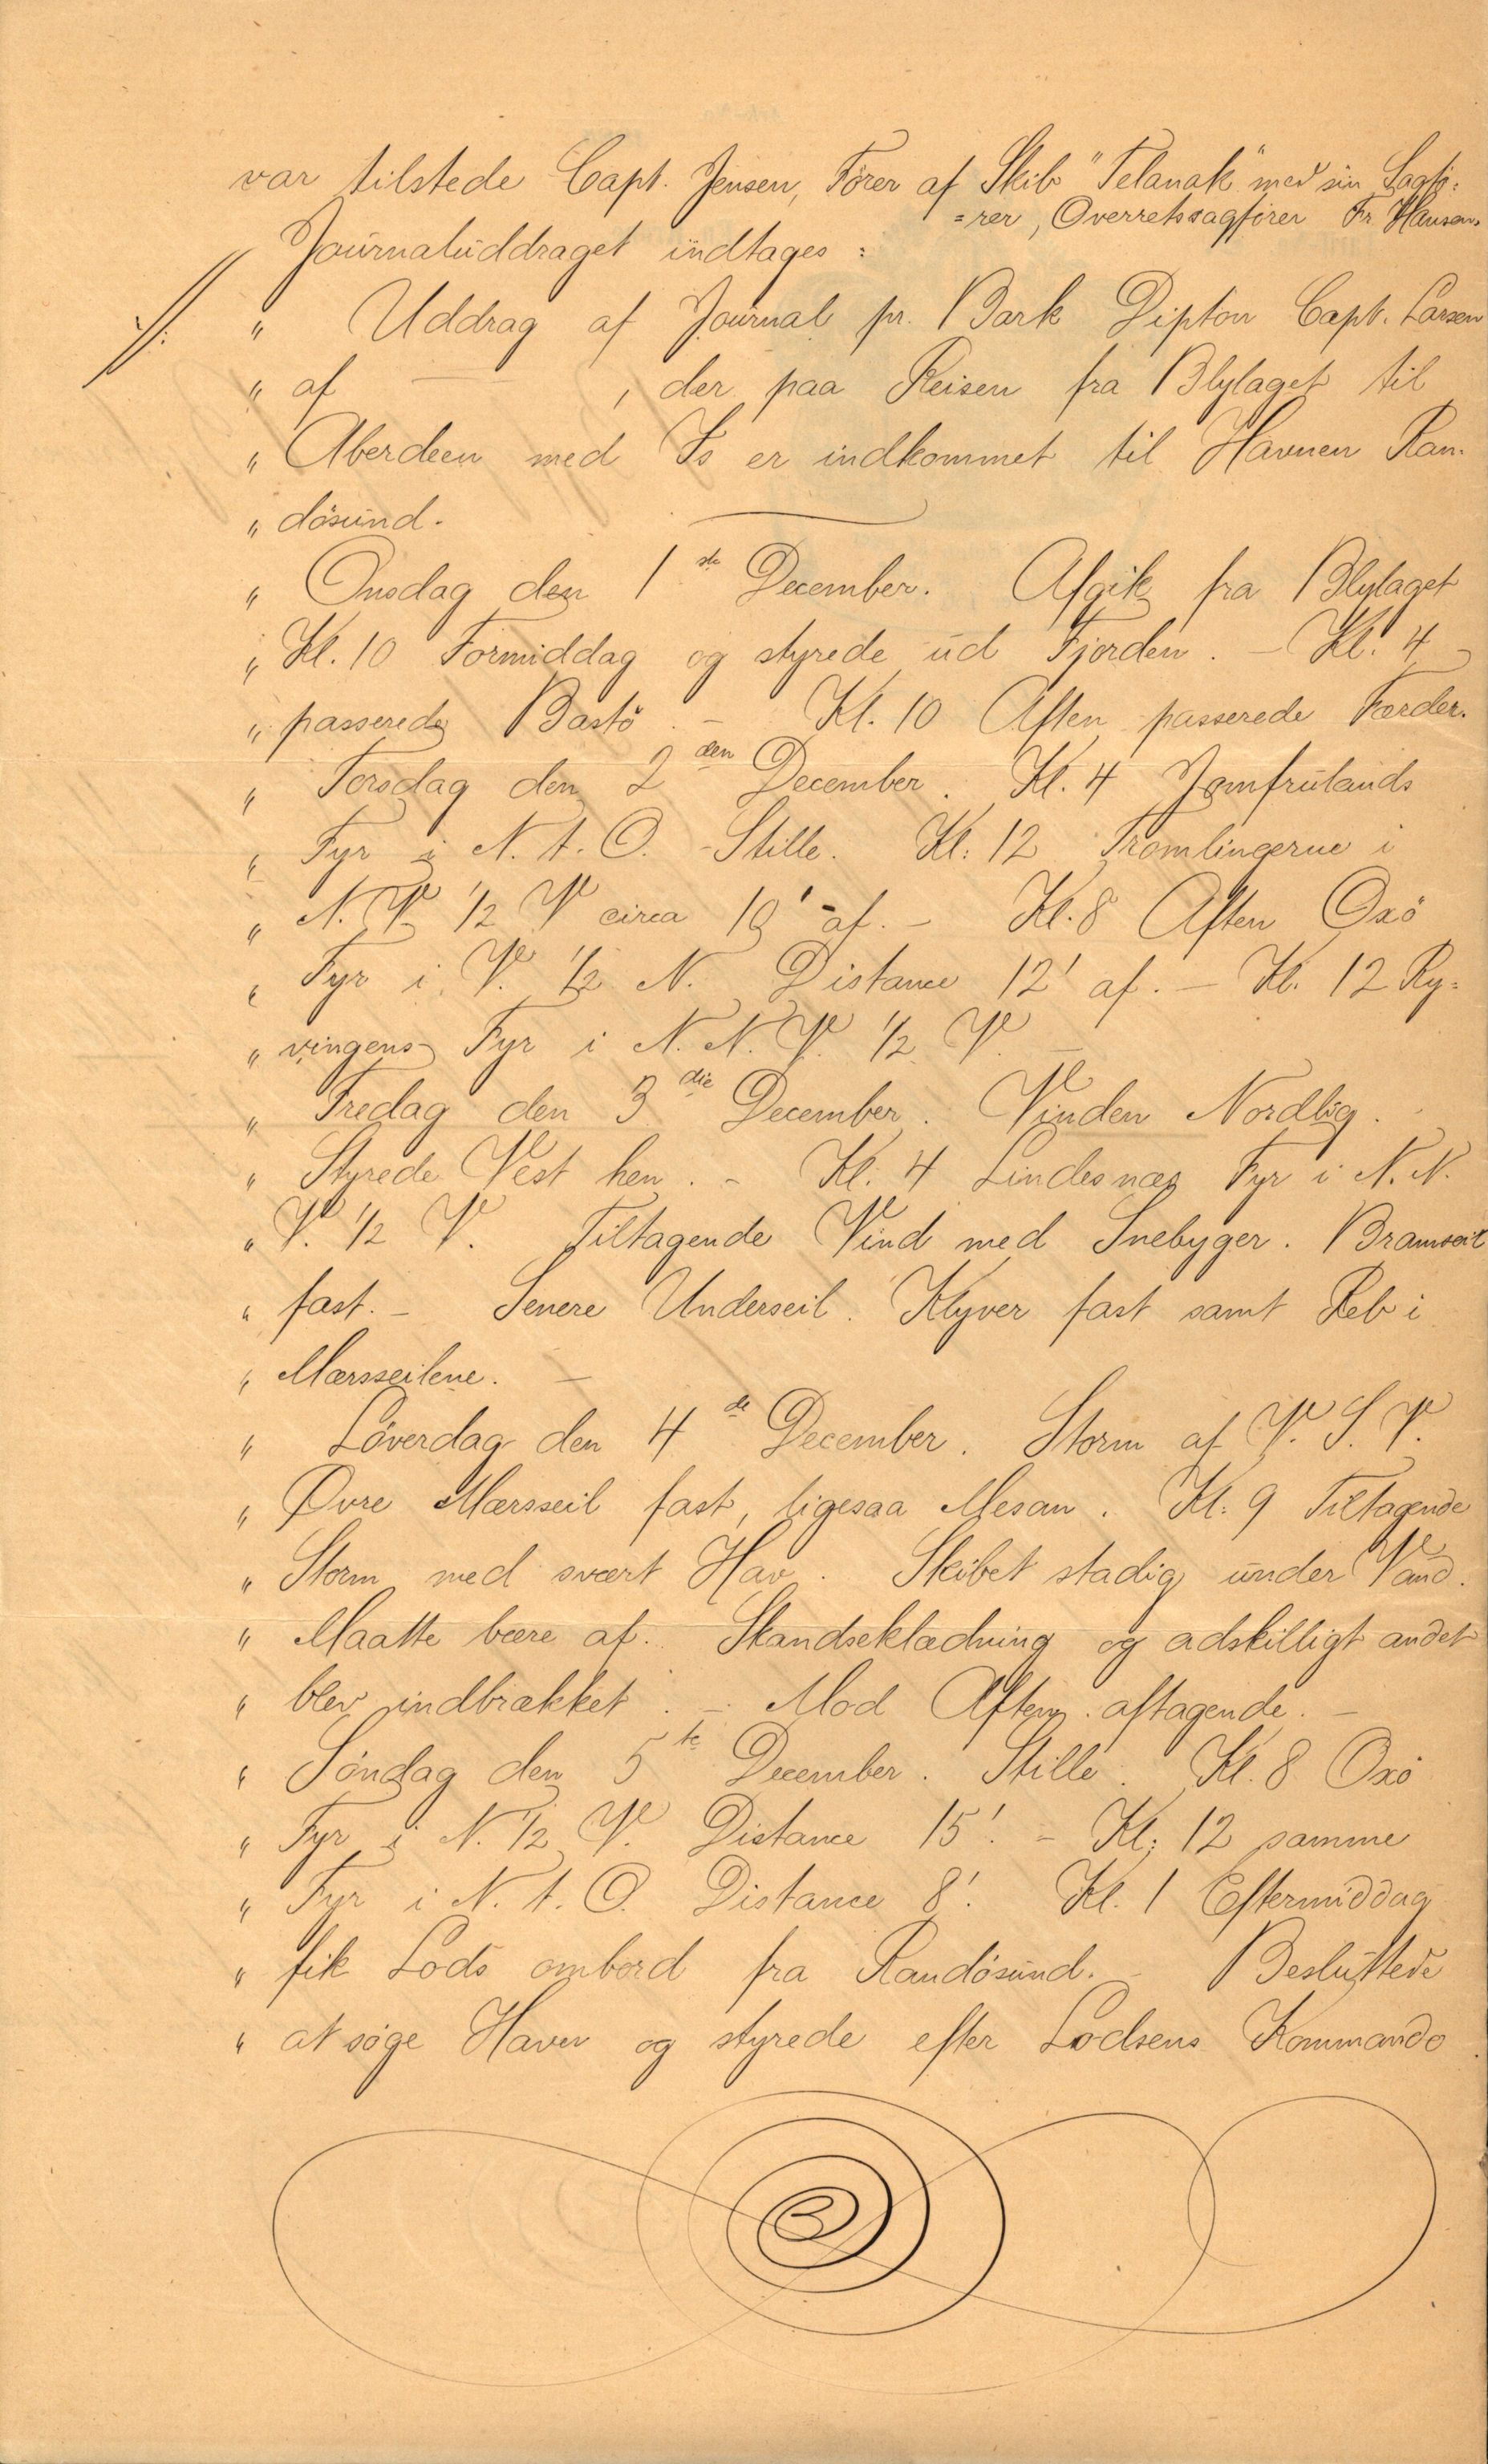 var tilstede Capt. Jensen, Fører af Skib "Telanak" med sin Sagfø:
=rer, Overretssagfører Fr. Hansen.
Journaluddraget indtages :
./. " Uddrag af Journal pr. Bark Dipton Capt. Larsen
" af — , der paa Reisen fra Blylaget til
" Aberdeen med Is er indkommet til Havnen Ran-
" døsund.
" Onsdag den 1ste December. Afgik fra Blylaget
" Kl. 10 Formiddag og styrede ud Fjorden. – Kl. 4
" passerede Bastø. – Kl. 10 Aften passerede Færder.
" Torsdag den 2den December. Kl. 4 Jomfrulands
" Fyr i N. t. O. – Stille. Kl: 12 Tromlingerne i
" N. V. 1/2 V circa 10' af. – Kl. 8 Aften Oxö
" Fyr i V. 1/2 N. Distance 12' af. – Kl. 12 Ry=
" vingens Fyr i N. N. V. 1/2 V. –
" Fredag den 3die December. Vinden Nordlig.
" Styrede Vest hen. – Kl: 4 Lindesnæs Fyr i N. N.
" V. 1/2 V. Tiltagende Vind med Snebyger. Bramseil
" fast. – Senere Underseil. Klyver fast samt Reb i
" Mærsseilene. –
" Løverdag den 4de December. Storm af V. S. V.
" Øvre Mærsseil fast, ligesaa Mesan. Kl: 9 Tiltagende
" Storm med svært Hav. Skibet stadig under Vand.
" Maatte bære af. Skandseklædning og adskilligt andet
" blev indbrækket. – Mod Aften aftagende. –
" Søndag den 5te December. Stille. Kl. 8 Oxö
" Fyr i N. 1/2 V. Distance 15'. – Kl; 12 samme
" Fyr i N. t. O. Distance 8'. Kl. 1 Eftermiddag
" fik Lods ombord fra Randøsund. – Besluttede
" at søge Havn og styrede efter Lodsens Kommando.